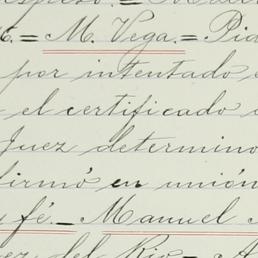 M. Vega.=Pid
por intentado
el certificado
Juez determino
firmó en unión
fé._ Manuel
del Rio_ A